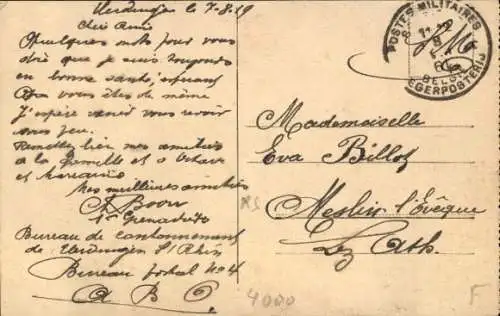 Uerdingen le 7-8-19
Chère Amie
Quelques mots pour vous
dire que je suis toujours
en bonne santé, espérant
que vous êtes de même
J'espère venir vous revoir
sous peu.
Remettez bien mes amitiés
a la famille et a Octave
et
Mes meilleures amitiés
A Boon
1er Grenadiers
Bureau de Cantonnement
de Uerdingen S/Rhin
Bureau postal No 4
A B O.
POSTES MILITAIRES
BELGE
LEGERPOSTERIJ
S.M.
Mademoiselle
Eva Billoz
Meslin l'Evêque
Lez Ath.
4000
F